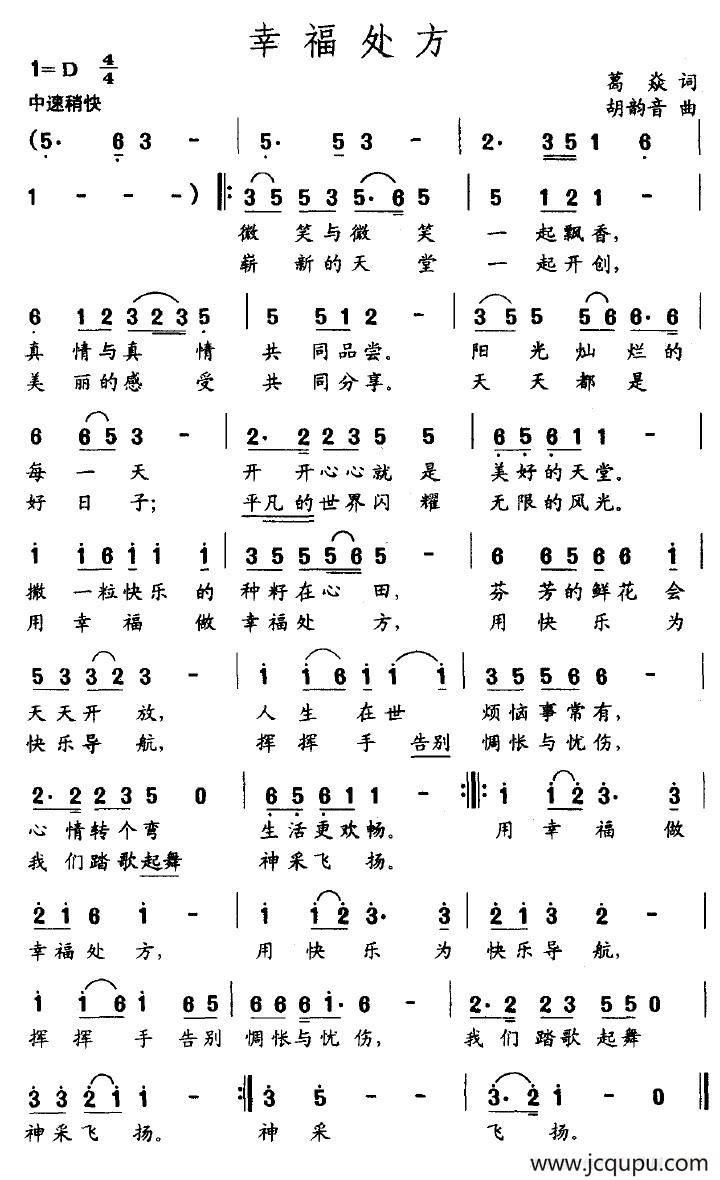 幸福处方
1=D 4/4
葛焱 词
中速稍快
胡韵音 曲
(5· 6 3 - | 5· 5 3 - | 2· 3 5 1 6
1 - - -) |: 3 5 5 3 5· 6 5 | 5 1 2 1 -
微笑与微笑 一起飘香,
崭新的天堂 一起开创,
6 1 2 3 2 3 5 | 5 5 1 2 - | 3 5 5 5 6 6· 6
真情与真情 共同品尝。 阳光灿烂的
美丽的感受 共同分享。 天天都是
6 6 5 3 - | 2· 2 2 3 5 5 | 6 5 6 1 1 -
每一天 开开心心就是 美好的天堂。
好日子; 平凡的世界闪耀 无限的风光。
i i 6 i i i | 3 5 5 5 6 5 - | 6 6 5 6 6 i
撒一粒快乐的 种籽在心田, 芬芳的鲜花会
用幸福做 幸福处方, 用快乐为
5 3 3 2 3 - | i i 6 i i i | 3 5 5 6 6 -
天天开放, 人生在世 烦恼事常有,
快乐导航, 挥挥手告别 惆怅与忧伤,
2· 2 2 3 5 0 | 6 5 6 1 1 - :||: i i 2 3· 3
心情转个弯 生活更欢畅。 用幸福做
我们踏歌起舞 神采飞扬。
2 i 6 i - | i i 2 3· 3 | 2 i 3 2 -
幸福处方, 用快乐为 快乐导航,
i i 6 i 6 5 | 6 6 6 i· 6 - | 2· 2 2 3 5 5 0
挥挥手告别 惆怅与忧伤, 我们踏歌起舞
3 3 2 i i - :| 3 5 - - | 3· 2 i - 0 ||
神采飞扬。 神采 飞扬。
www.jcqupu.com